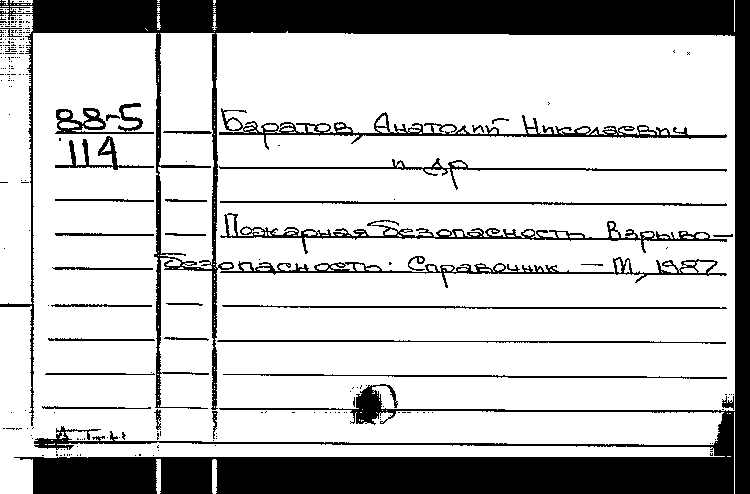 88-5 Баратов, Анатолий Николаевич
114 и др
Пожарная безопасность. Взрыво-
безопасность: Справочник. – М., 1987